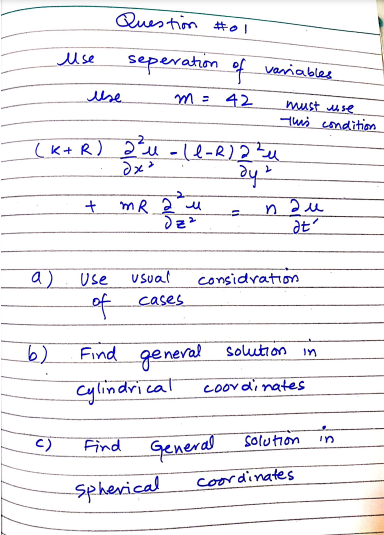 Question #01
Use seperation of variables
Use m = 42 must use
this condition
(K+R) ∂²u/∂x² - (l-R) ∂²u/∂y²
+ mR ∂²u/∂z² = n ∂u/∂t
a) Use usual considration
of cases
b) Find general solution in
cylindrical coordinates
c) Find General solution in
spherical coordinates